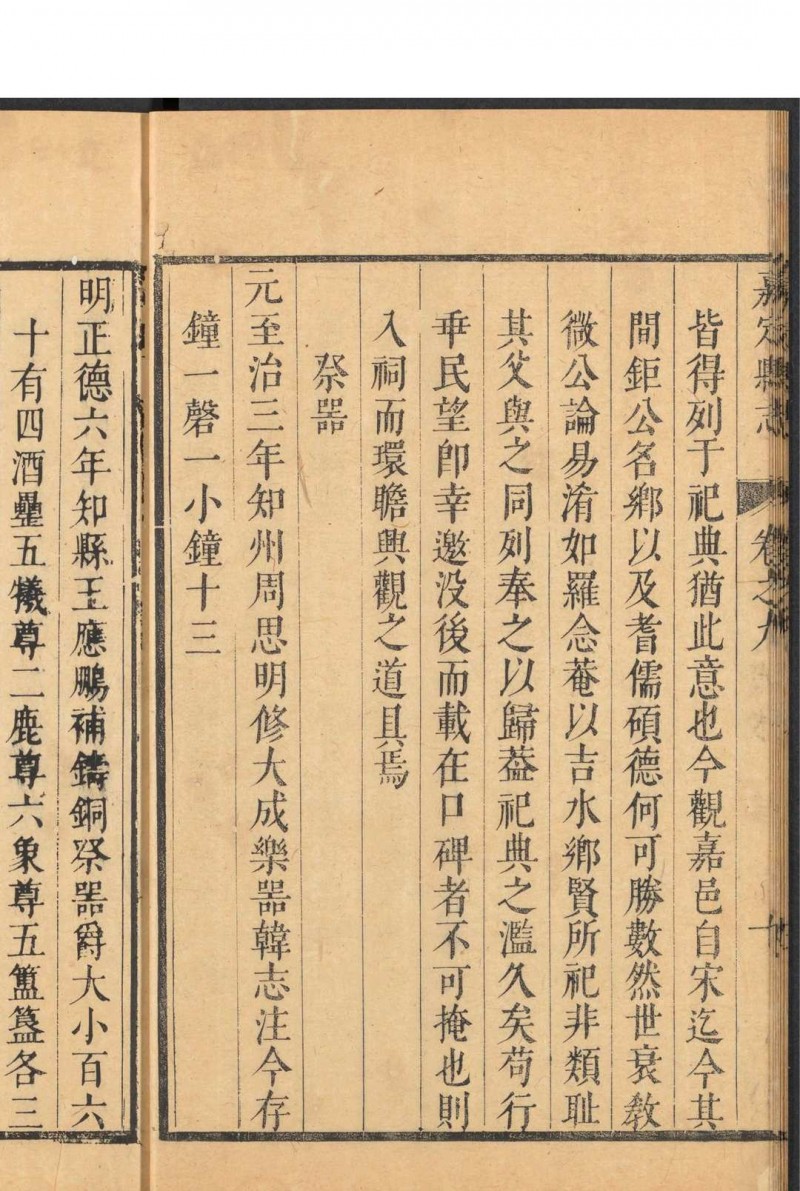 嘉定縣志
卷之九
十
皆得列于祀典猶此意也今觀嘉邑自宋迄今其
間鉅公名鄉以及耆儒碩德何可勝數然世衰教
微公論易淆如羅念菴以吉水鄉賢所祀非類耻
其父與之同列奉之以歸葢祀典之濫久矣茍行
垂民望卽幸邀没後而載在口碑者不可掩也則
入祠而環瞻興觀之道具焉
祭噐
元至治三年知州周思明修大成樂噐韓志注今存
鐘一磬一小鐘十三
明正德六年知縣王應鵬補鑄銅祭噐爵大小百六
十有四酒罍五犧尊二鹿尊六象尊五簠簋各三